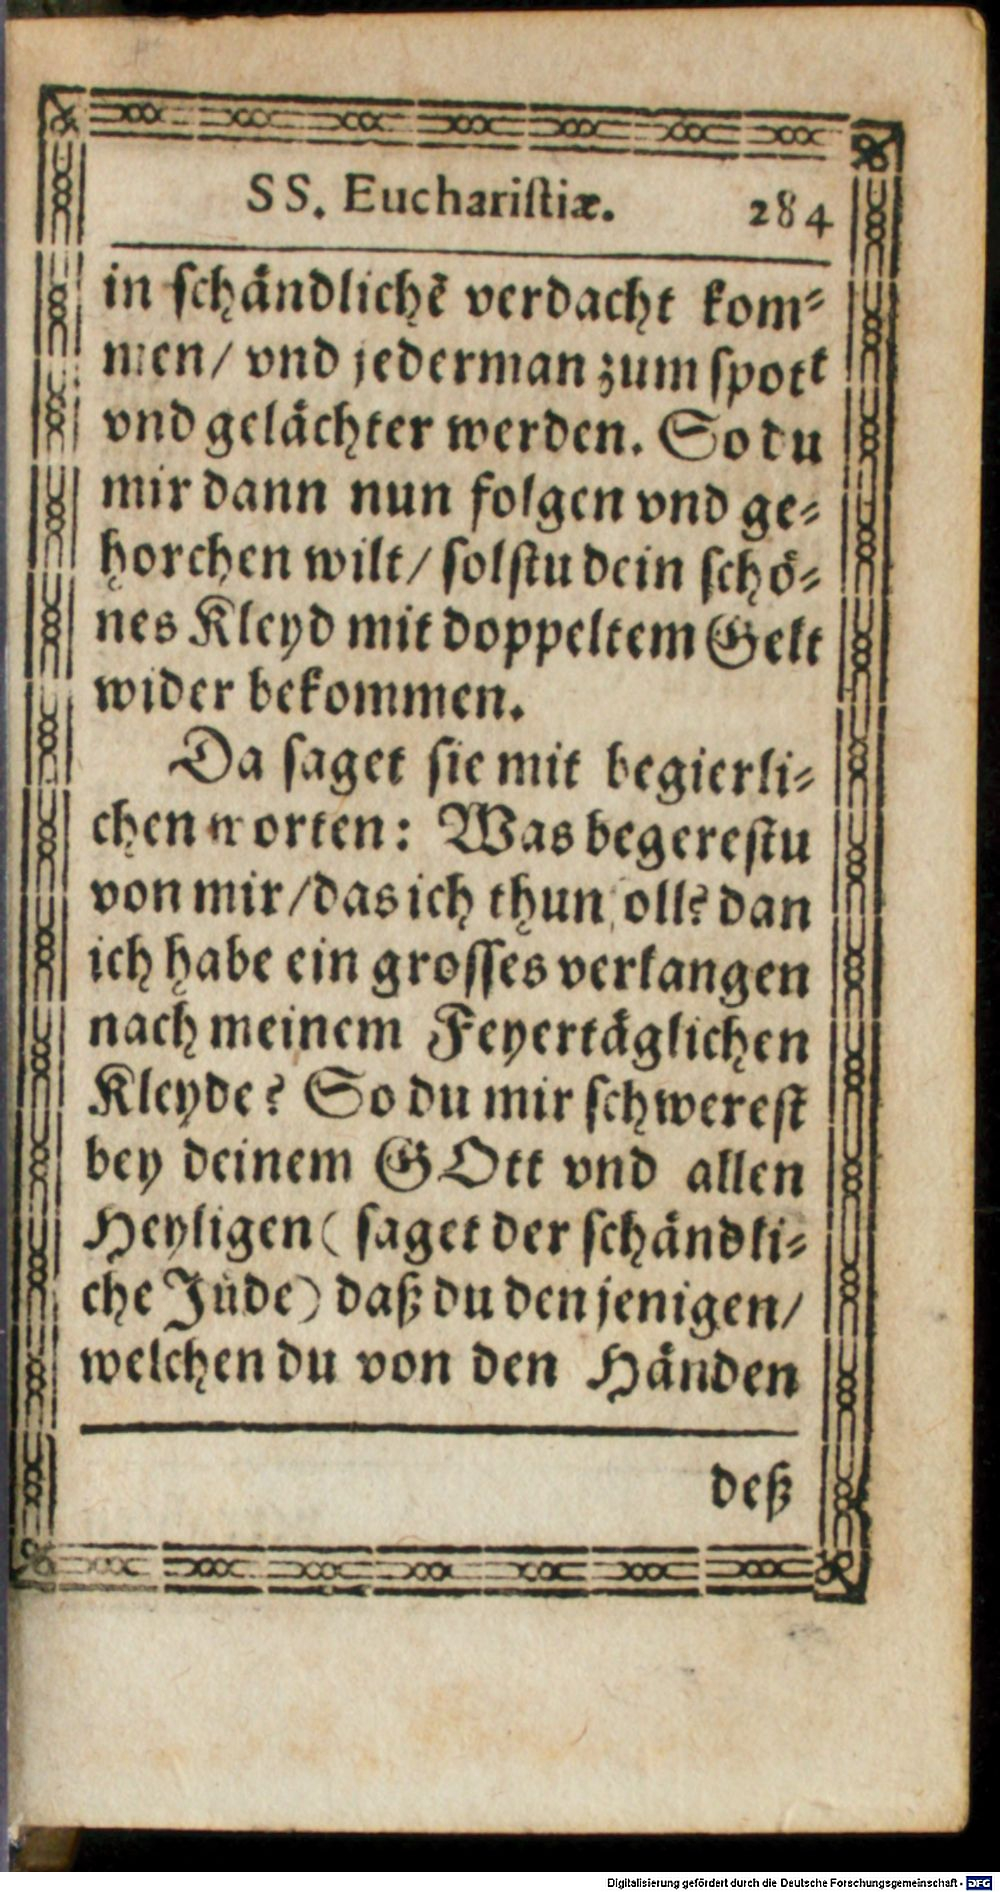 SS. Euchariſtiæ. 284
in ſchändlichẽ verdacht kom⸗
men/ vnd jederman zum ſpott
vnd gelächter werden. So du
mir dann nun folgen vnd ge⸗
horchen wilt/ ſolſtu dein ſchö⸗
nes Kleyd mit doppeltem Gelt
wider bekommen.
Da ſaget ſie mit begierli⸗
chen worten: Was begereſtu
von mir/das ich thun ſoll? dan
ich habe ein groſſes verlangen
nach meinem Feyertäglichen
Kleyde? So du mir ſchwereſt
bey deinem GOtt vnd allen
Heyligen( ſaget der ſchändli⸗
che Jüde) daß du den jenigen/
welchen du von den Händen
deß
Digitalisierung gefördert durch die Deutsche Forschungsgemeinschaft - DFG